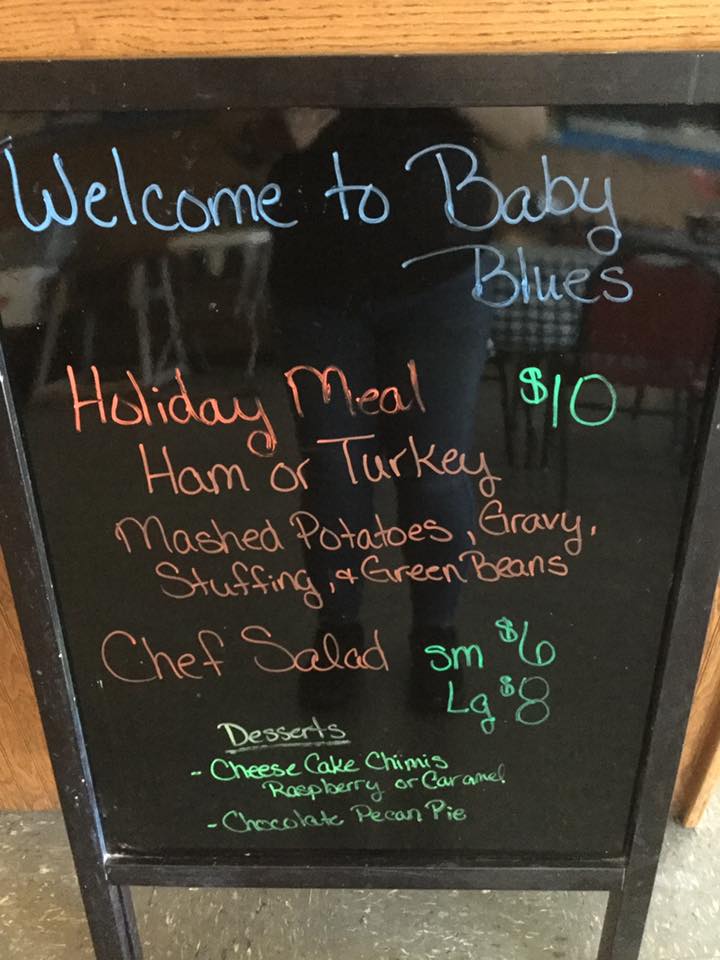 Welcome to Baby
Blues
Holiday Meal $10
Ham or Turkey
Mashed Potatoes, Gravy,
Stuffing, & Green Beans
Chef Salad sm $6
Lg $8
Desserts
- Cheese Cake Chimis
Raspberry or Caramel
- Chocolate Pecan Pie